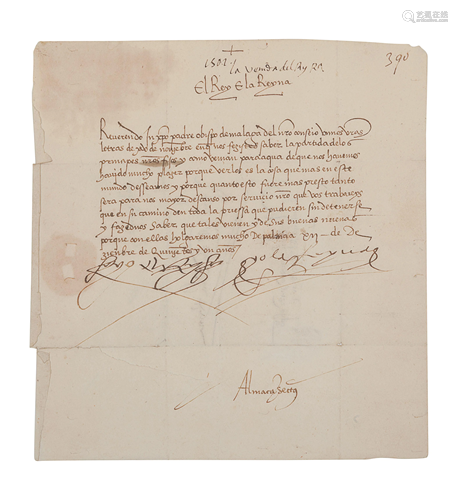 艺狐在线
1501 la venida del Rey
390
El Rey E la Reyna
Reverendo in xpo padre obispo de malaga del nro consejo vimos vras
letras de de novienbre en q nos fezistes saber la partida de los
principes nros fijos y como venian para aqua de que nos havemos
havido mucho plazer porque verlos es la cosa que mas en este
mundo desseamos y porque quanto esto fuere mas presto tanto
sera para nos mayor descanso por servicio nro que vos trabajeys
que en su camino den toda la priessa que pudieren sin detenerse
y fazednos saber que tales vienen y de sus buenas nuevas
porque con ellas holgaremos mucho De XII de de
zienbre de Quinientos y un años
yo el Rey yo la Reyna
Almaça